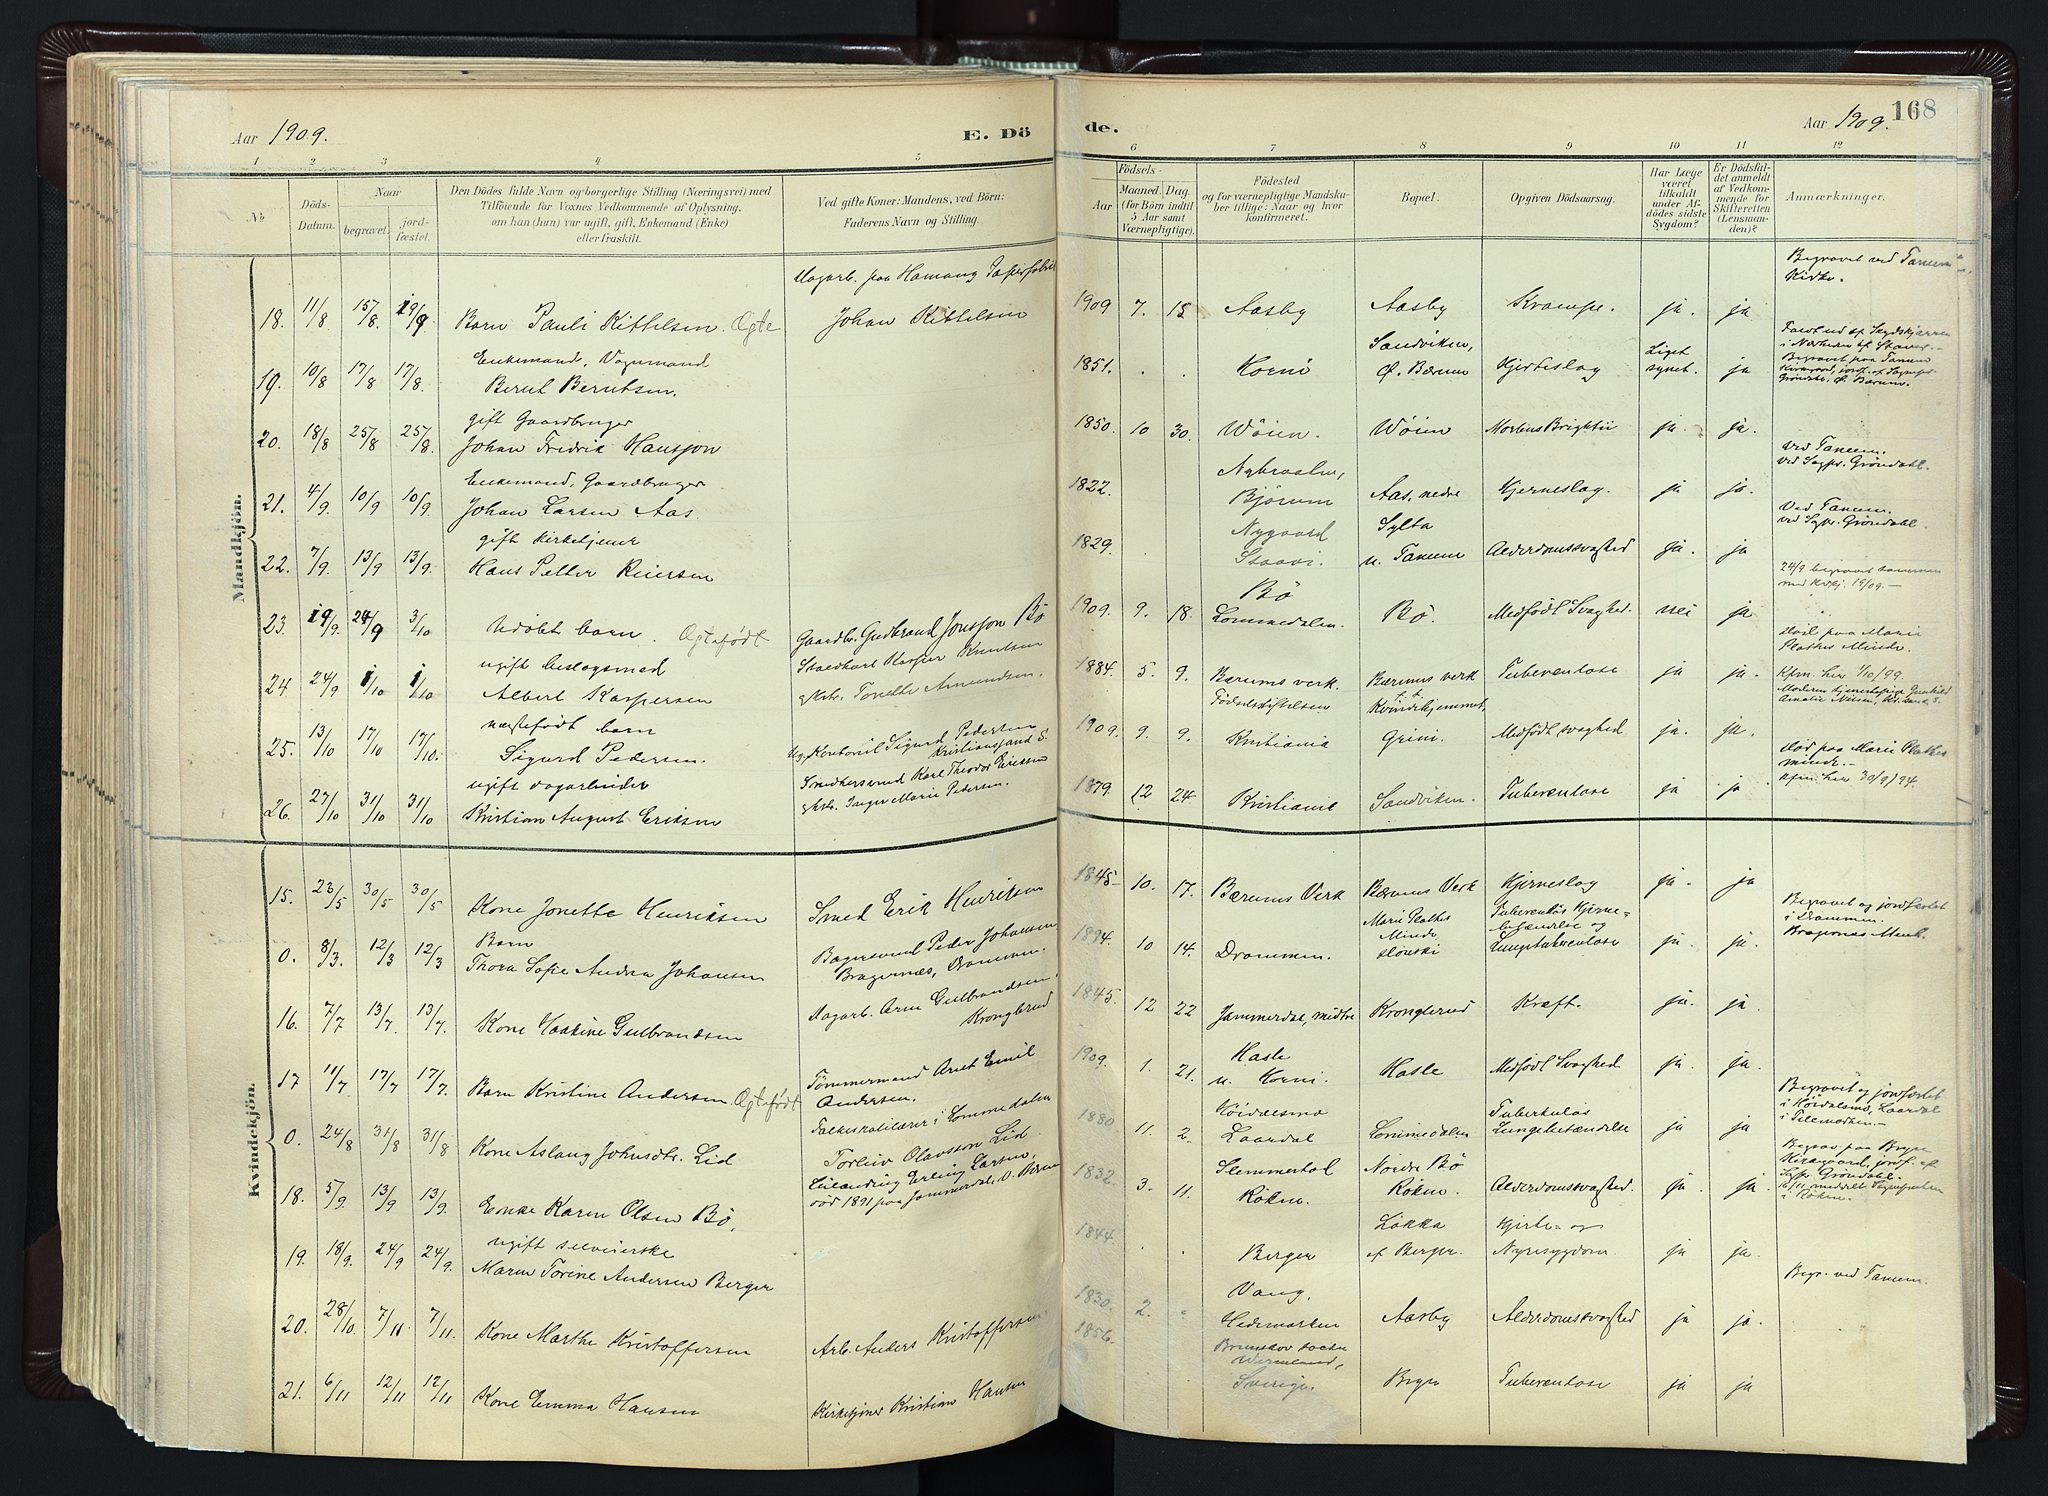 Aar 1909.
E. Dö
de.
Aar 1909.
168
1 2 3 4 5 6 7 8 9 10 11 12
No
Döds-Datum.
Naar
begravet.
jord-fæstet.
Den Dödes fulde Navn og borgerlige Stilling (Næringsvei) med
Tilföiende for Voxnes Vedkommende af Oplysning,
om han (hun) var ugift, gift, Enkemand (Enke)
eller fraskilt.
Ved gifte Koner: Mandens, ved Börn:
Faderens Navn og Stilling.
Födsels-
Aar
Maaned.
Dag.
(for Börn indtil
5 Aar samt
Værnepligtige).
Födested
og for værnepligtige Mandska-
ber tillige: Naar og hvor
konfirmeret.
Bopæl.
Opgiven Dödsaarsag.
Har Læge
været
tilkaldt
under Af-
dödes sidste
Sygdom?
Er Dödsfal-
det anmeldt
af Vedkom-
mende for
Skifteretten
(Lensman-
den)?
Anmærkninger.
Mandkjön.
Dagarb. paa Hamang Papirfabrik
Begravet ved Tanum Kirke.
18. 11/8 15/8. 19/9 Barn Pauli Kittelsen. Ægte Johan Kittelsen 1909 7. 15 Aasby Aasby Krampe. ja. ja
Enkemand, Vognmand
Sandviken,
19. 10/8 17/8 17/8. Bernt Berntsen. 1851. . . Horni Ø. Bærum Hjerteslag Liget synet. ja
Begravet paa Tanum
gift Gaardbruger
20. 18/8 25/8 25/8. Johan Fredrik Hansson 1850. 10 30. Wöien. Wöien Morbus Brightii ja. ja.
Enkemand, Gaardbruger
ved Tanum.
ved Sogpr. Gröndahl.
21. 4/9. 10/9 10/9 Johan Larsen Aas. 1822. Bjørum Aas, nedre Hjerneslag. ja ja.
gift kirketjener
Nygaard
Sylta
Ved Tanum.
ved Sgpr. Gröndahl.
22. 7/9. 13/9 13/9. Hans Petter Reiersen 1829. Staavi. u. Tanum Alderdomssvaghed ja. ja
24/9 begravet
Bö
23. 19/9. 24/9 3/10 Udöbt barn. Ægtefödt Gaardbr. Gudbrand Jonsson Bö 1909. 9. 18. Lommedalen. Bö. Medfödt Svaghed. nei ja
ugift beslagsmed
död paa Marie
Plathes Minde.
24 24/9 1/10 1/10 Albert Kaspersen 1884. 5. 9. Bærums verk. Bærums verk Tuberculose ja ja. Kfm. her 1/10/99.
Födselsstiftelsen
Kvindehjemmet,
uægtefödt barn
25. 13/10 17/10 17/10. Sigurd Pedersen. Ug. Kontorist Sigurd Pedersen Kristianssand S. 1909. 9. 9. Kristiania Grini. Medfödt svaghed ja. ja.
ugift dagarbeider
död paa Marie Plathes
minde.
Kfm. her 30/9/94.
26. 27/10 31/10 31/10 Kristian August Eriksen Smedkersvend Karl Theodor Eriksen
Inger Marie Pedersen. 1879. 12 24 Kristiania Sandviken. Tuberculose ja ja
Kvindekjön.
15. 23/5 30/5 30/5 Kone Jonette Henriksen Smed Erik Henriksen 1845 10. 17. Bærums Verk Bærums Verk Hjerneslag ja. ja
Barn
Marie Plathes
Minde
Tuberkulös Hjerne-
betændelse og
Begravet og jordfæstet
i Drammen.
Bragernæs Menh.
0. 8/3. 12/3 12/3 Thora Sofie Andrea Johansen Bagersvend Peder Johansen
Bragernæs, Drammen. 1894. 10 14. Drammen. Lungetuberculose ja. ja.
16. 7/7 13/7. 13/7. Kone Haakine Gulbrandsen Dagarb. Arne Gulbrandsen,
Kronglerud 1845. 12 22 Jammerdal, midtre Kronglerud Kræft. ja. ja.
17 11/7 17/7 17/7. Barn Kristine Andersen. Ægtefödt Tömmermand Arnt Emil
Andersen. 1909. 1. 21. Hasle
u. Horni. Hasle Medfödt Svaghed ja. ja.
0. 24/8 31/8 31/8 Kone Aslaug Johnsdtr. Lid Folkeskolelærer i Lommedalen
Torleiv Olavsson Lid. 1880 11. 2. Höidalsmo
Laardal Lommedalen Tuberkulös
Lungebetændelse ja ja Begravet og jordfæstet
i Höidalsmo, Laardal
i Telemarken.
18. 5/9. 13/9 13/9. Enke Karen Olsen Bö, Leilending Erling Larsen,
död 1891 paa Jammerdal, Ø. Bærum 1832. 3. 11. Slemmestad
Röken. Nordre Bö
Röken. Alderdomssvaghed. ja. ja.
i Röken.
19. 18/9. 24/9 24/9. ugift selveierske
Maren Torine Andersen Berger 1844. . . Berger Lökka
af Berger. Hjerte- og
Nyresygdom. ja ja.
Begr. ved Tanum.
20. 28/10. 7/11 7/11. Kone Marthe Kristoffersen Arb. Anders Kristoffersen. 1830. 2. Vang,
Hedemarken Aasby Alderdomssvaghed ja ja.
21. 6/11 12/11 12/11 Kone Emma Hansen Kirketjener Kristian Hansen 1856. Wermland,
Sverige. Bryn Tuberculose ja ja